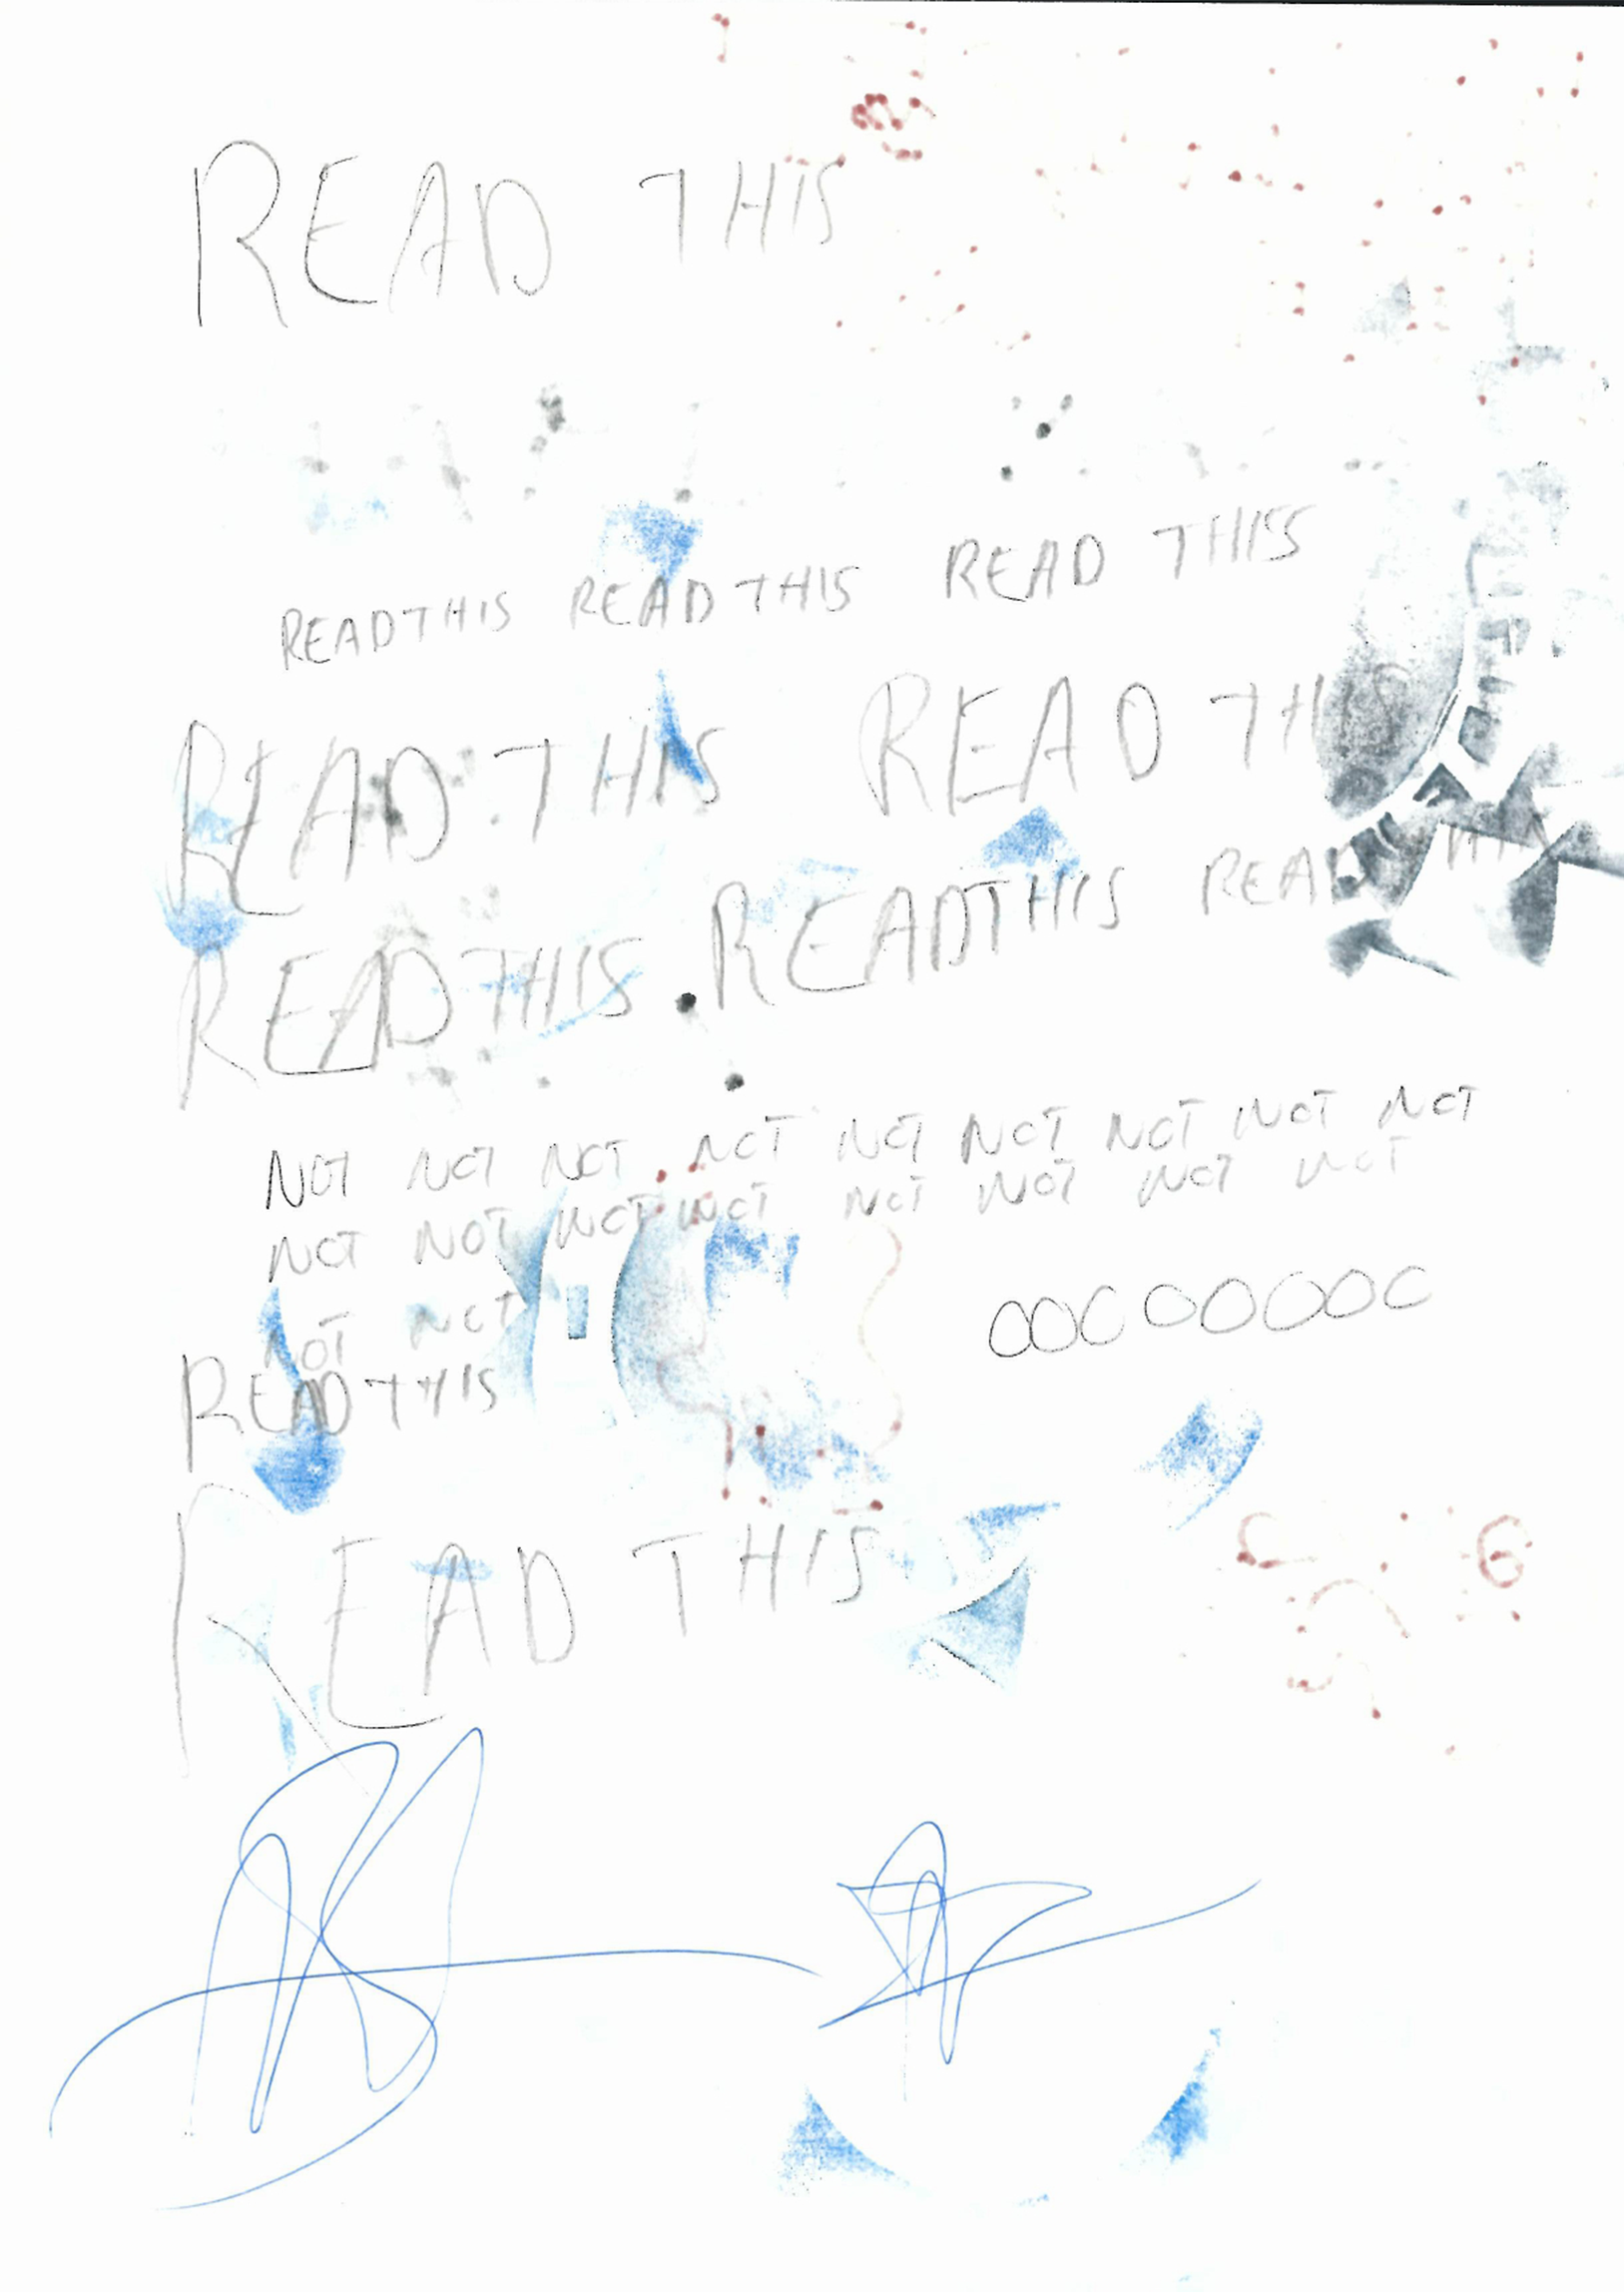 READ THIS
READTHIS READ THIS READ THIS
READ THIS READ THIS
READ THIS READTHIS READ THIS
NOT NOT NOT NOT NOT NOT NOT NOT NOT
NOT NOT NOT NOT NOT NOT NOT NOT
NOT NOT
OOC OOOOOC
READ THIS
READ THIS